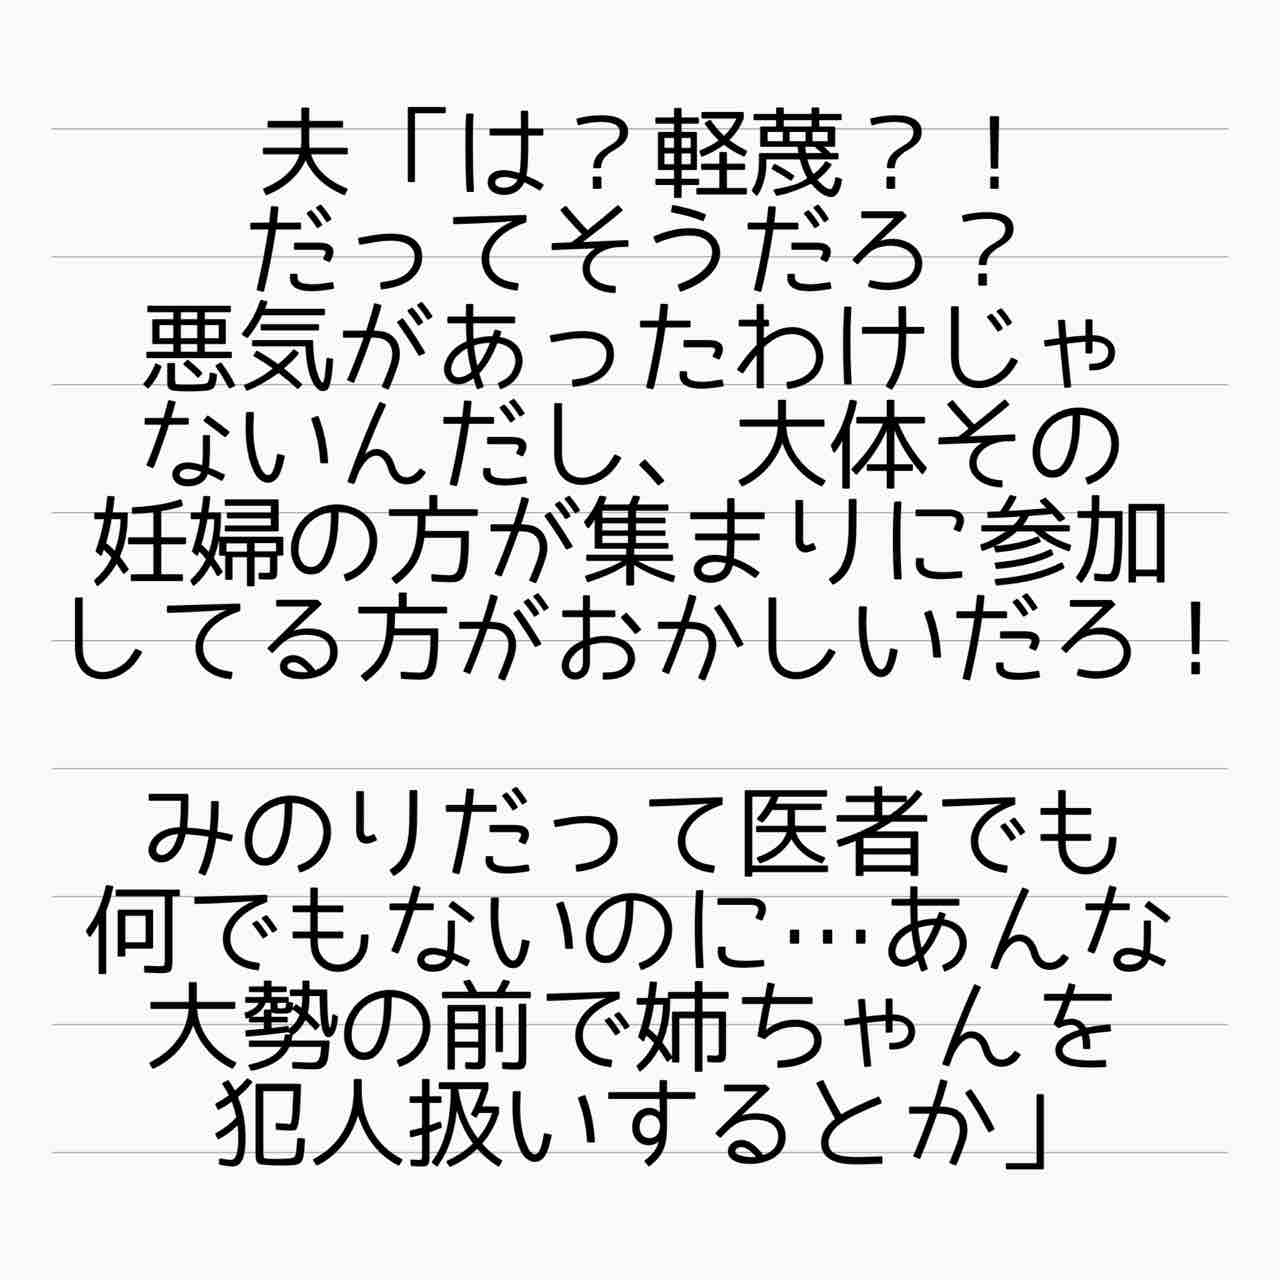 夫「は？軽蔑？！
だってそうだろ？
悪気があったわけじゃ
ないんだし、大体その
妊婦の方が集まりに参加
してる方がおかしいだろ！
みのりだって医者でも
何でもないのに…あんな
大勢の前で姉ちゃんを
犯人扱いするとか」